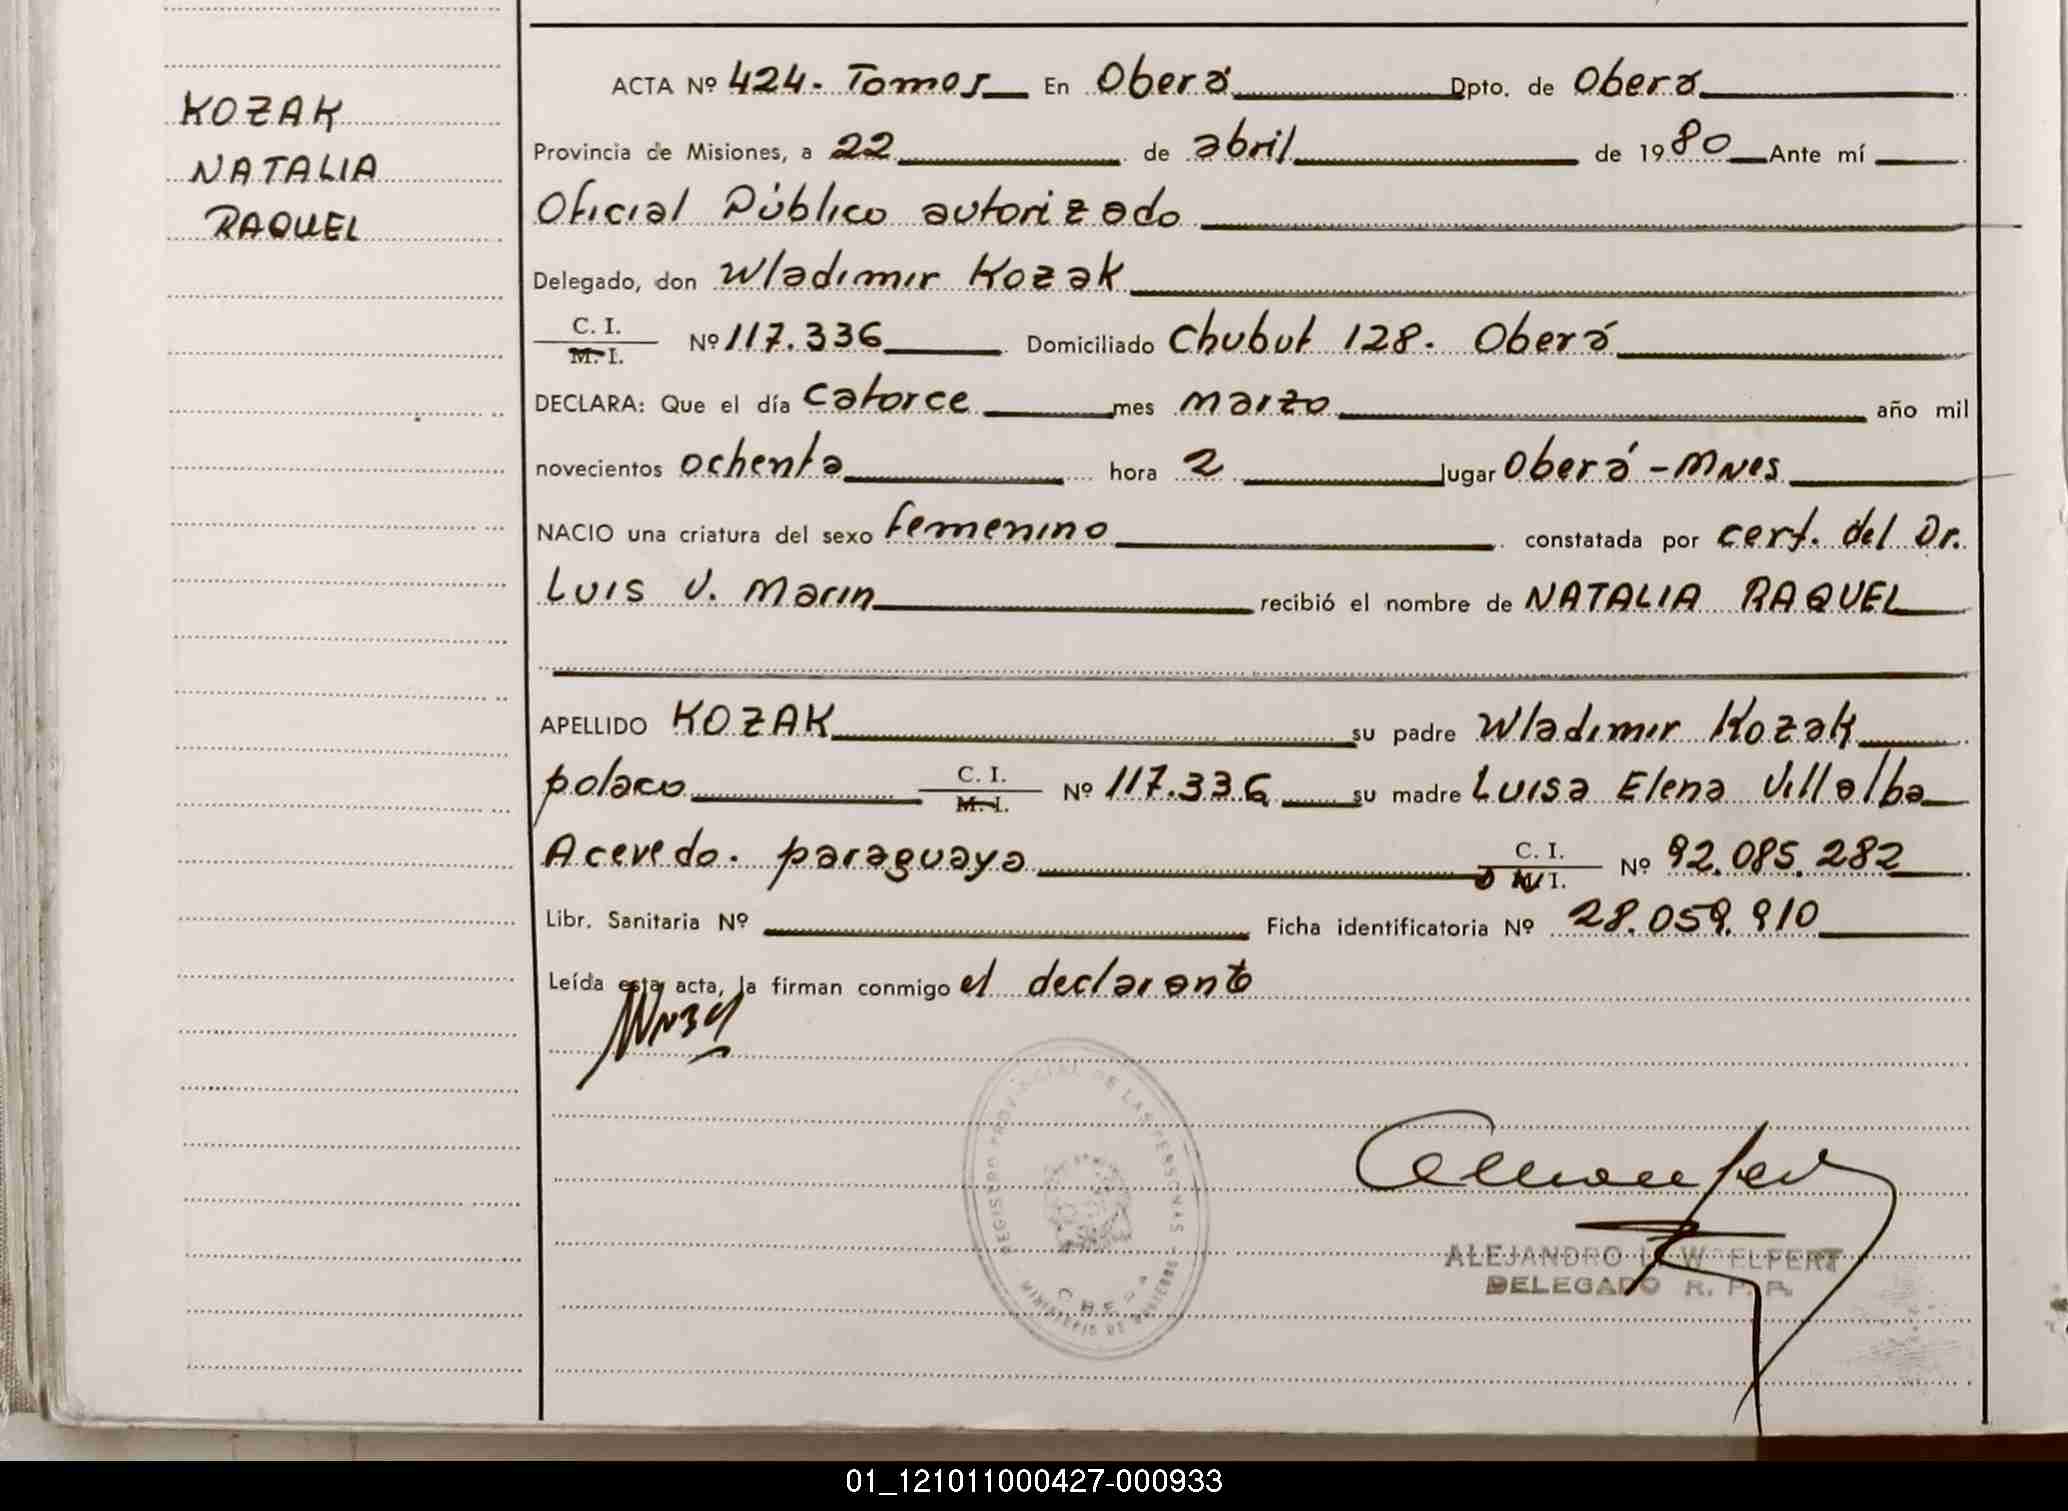 KOZAK
NATALIA
RAQUEL
ACTA Nº 424. Tomo I En Oberá Dpto. de Oberá
Provincia de Misiones, a 22 de abril de 1980 Ante mí
Oficial Público autorizado
Delegado, don Wladimir Kozak
C. I.
M. I. Nº 117.336 Domiciliado Chubut 128. Oberá
DECLARA: Que el día catorce mes marzo año mil
novecientos ochenta hora 2 lugar Oberá - Mnes
NACIO una criatura del sexo femenino constatada por cert. del Dr.
Luis V. Marin recibió el nombre de NATALIA RAQUEL
APELLIDO KOZAK su padre Wladimir Kozak
polaco C. I. M. I. Nº 117.336 su madre Luisa Elena Villalba
Acevedo. paraguaya C. I. M. I. Nº 92.085.282
Libr. Sanitaria Nº Ficha identificatoria Nº 28.059.910
Leída esta acta, la firman conmigo el declarante
REGISTRO PROVINCIAL DE LAS PERSONAS
MINISTERIO DE GOBIERNO
OBERA
ALEJANDRO
DELEGADO R. P. P.
01_121011000427-000933